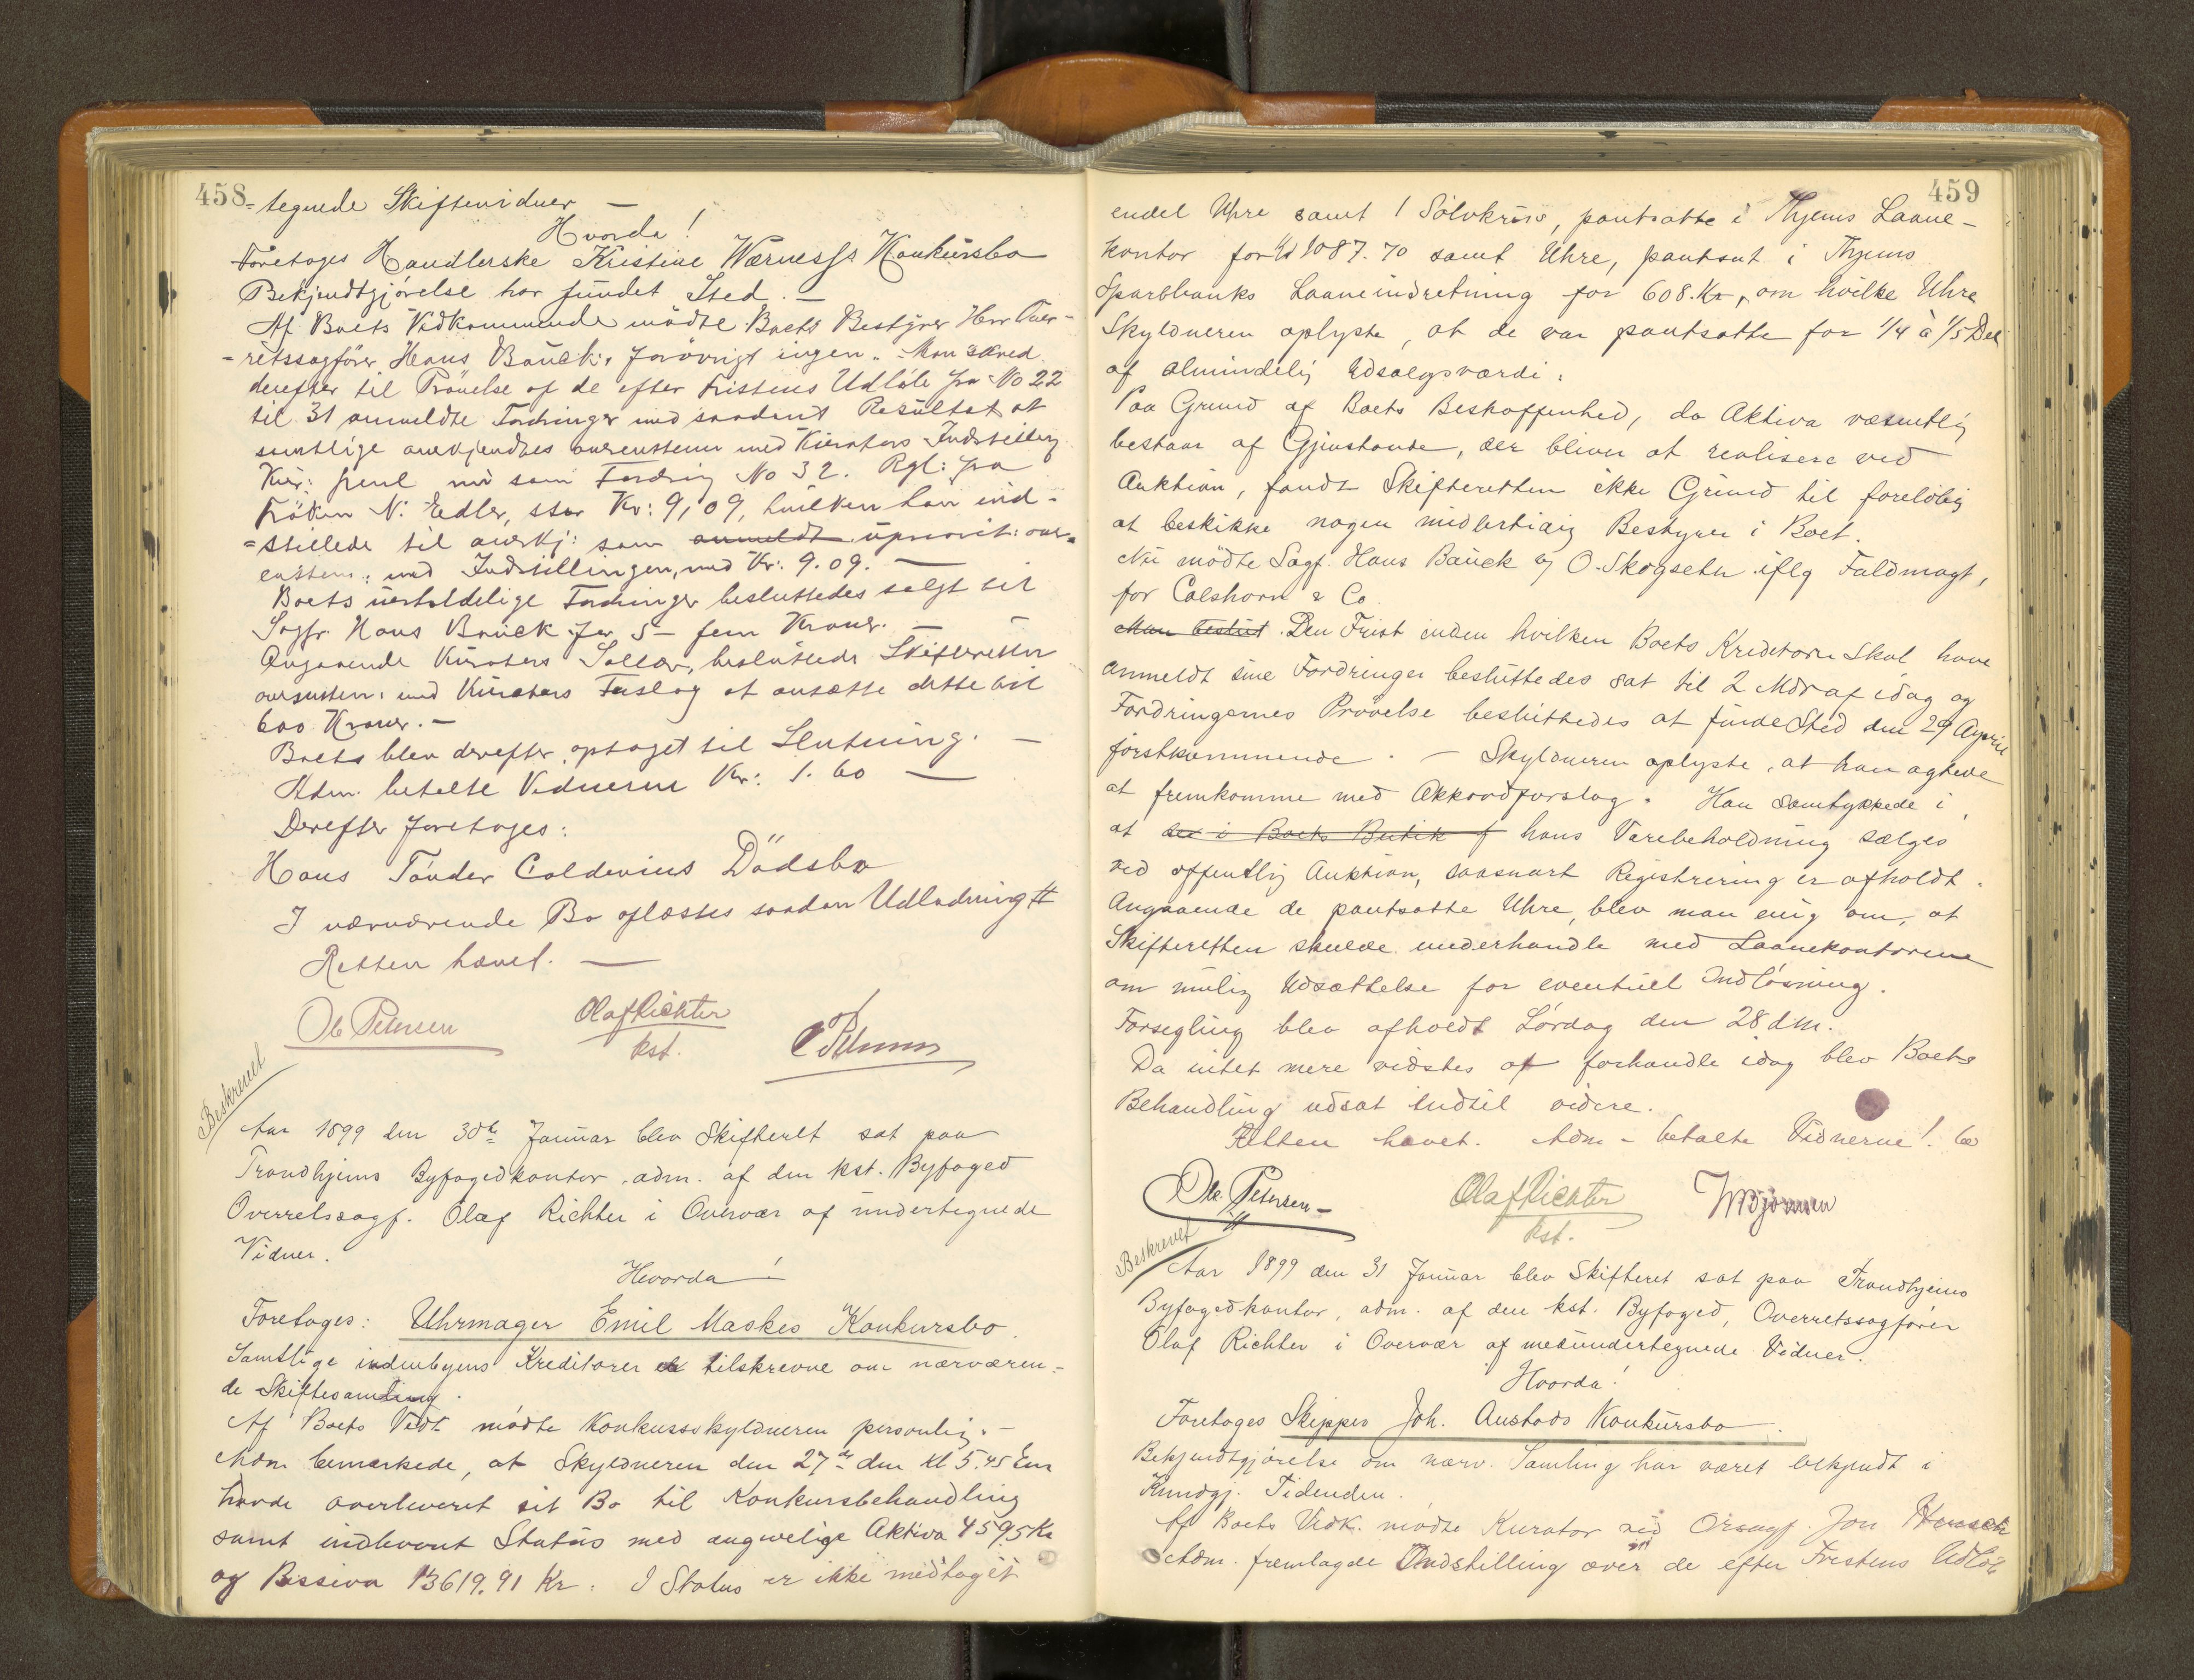 458
- tegnede Skiftevidner —
Hvorda!
Foretoges Handlerske Kristine Wærness's Konkursbo
Bekjendtgjørelse har fundet Sted. —
Af Boets Vedkommende mødte Boets Bestyrer Herr Over-
-retssagfører Hans Bauck, forøvrigt ingen. Man skred
derefter til Prøvelse af de efter Fristens Udløb fra No 22
til 31 anmeldte Fordringer med saadant Resultat at
samtlige anerkjendtes overensstem med Kurators Indstilling
Kur: freml nu som Fordring No 32. Rgl: fra
Frøken N. Edler, stor Kr: 9,09, hvilken han ind-
=stillede til anerkj: som anmeldt uprivit: over=
enstem: med Indstillingen, med Kr: 9.09. —
Boets uerholdelige Fordringer besluttedes solgt til
Sagfr. Hans Bauck for 5 — fem Kroner. —
Angaaende Kurators Sallær, besluttede Skifteretten
overensstem: med Kurators Forslag at ansætte dette til
600 Kroner. —
Boets blev derefter optaget til Slutning. —
Adm. betalte Vidnerne Kr: 1.60 —
Derefter foretoges:
Hans Tønder Coldevins Dødsbo
I nærværende Bo oplæstes saadan Udlodning tt
Retten hævet. —
Ole Petersen
Olaf Richter
kst.
Beskrevet
Aar 1899 den 30te Januar blev Skifteret sat paa
Trondhjems Byfogedkontor, adm. af den kst. Byfoged
Overretssagf. Olaf Richter i Overvær af undertegnede
Vidner.
Hvorda!
Foretoges: Uhrmager Emil Maskes Konkursbo.
Samtlige indenbyens Kreditorer er tilskrevne om nærværen-
de Skiftesamling.
Af Boets Vedk. mødte Konkursskyldneren personlig. —
Adm bemærkede, at Skyldneren den 27de dm Kl 5.45 Em
havde overleveret sit Bo til Konkursbehandling
samt indleveret Status med angivelige Aktiva 4595 Kr
og Passiva 13619.91 Kr. I Status er ikke medtaget
459
endel Uhre samt 1 Sølvkrus, pantsatte i Thjems Laane-
kontor for Kr 1087.70 samt Uhre, pantsat i Thjems
Sparebanks Laaneindretning for 608. Kr, om hvilke Uhre
Skyldneren oplyste, at de var pantsatte for 1/4 à 1/5 Del
af almindelig Udsalgsværdi.
Paa Grund af Boets Beskaffenhed, da Aktiva væsentlig
bestaar af Gjenstande, der bliver at realisere ved
Auktion, fandt Skifteretten ikke Grund til foreløbig
at beskikke nogen midlertidig Bestyrer i Boet.
Nu mødte Sagf. Hans Bauck og O. Skogseth iflg Fuldmagt,
for Colshorn & Co.
Man beslut. Den Frist inden hvilken Boets Kreditorer skal have
anmeldt sine Fordringer besluttedes sat til 2 Mdr af idag og
Fordringernes Prøvelse besluttedes at finde Sted den 29 April
førstkommende. — Skyldneren oplyste, at han agtede
at fremkomme med Akkordforslag. Han samtykkede i,
at der i Boets Butik f hans Varebeholdning sælges
ved offentlig Auktion, saasnart Registrering er afholdt.
Angaaende de pantsatte Uhre, blev man enig om, at
Skifteretten skulde underhandle med Laanekontorerne
om mulig Udsættelse for eventuel Indløsning.
Forsegling blev afholdt Lørdag den 28 dm.
Da intet mere vidstes at forhandle idag blev Boets
Behandling udsat indtil videre.
Retten hævet. Adm — betalte Vidnerne 1.60
Ole Petersen —
Olaf Richter
kst.
Beskrevet
Aar 1899 den 31 Januar blev Skifteret sat paa Trondhjems
Byfogedkontor, adm. af den kst. Byfoged, Overretssagfører
Olaf Richter i Overvær af medundertegnede Vidner.
Hvorda!
Foretoges Skipper Joh. Austads Konkursbo.
Bekjendtgjørelse om nærv. Samling har været bekjendt i
Kundgj. Tidenden.
Af Boets Vedk. mødte Kurator ved Orsagf. Jon
Adm. fremlagde Indstilling over de efter Fristens Udløb